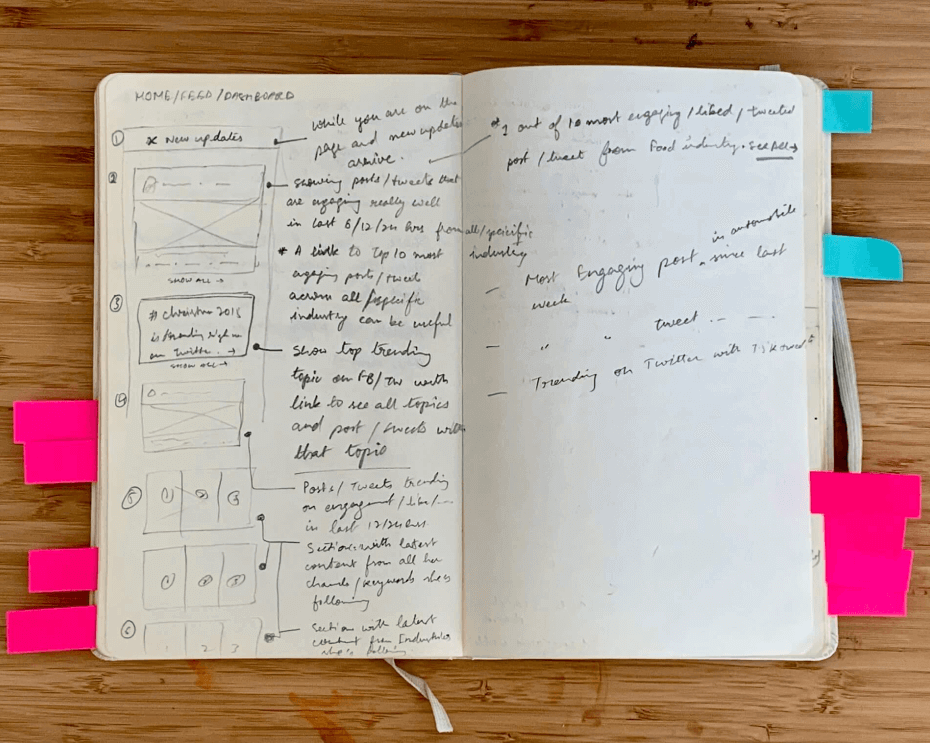 HOME/FEED/DASHBOARD
1
x New updates
2
SHOW ALL →
3
# Christmas 2018
is trending right now
on Twitter. →
SHOW ALL →
4
5
1 2 3
1 2 3
6
1 2 3
While you are on the
page and new updates
arrive.
Showing posts/tweets that
are engaging really well
in last 6/12/24 hrs from all/specific
industry
* A link to Top 10 most
engaging posts/tweets
across all/specific
industry can be useful
Show top trending
topic on FB/TW with
link to see all topics
and post/tweets with
that topic
Posts/Tweets trending
on engagement/like/---
in last 12/24 hrs
Sections with latest
content from all her
channels/keywords she's
following
Section with latest
content from Industries
she's following
* 1 out of 10 most engaging/liked/tweeted
post/tweet from Food industry. See All →
in automobile
— Most Engaging post . since last
week
— " " tweet .— —.
— Trending on Twitter with